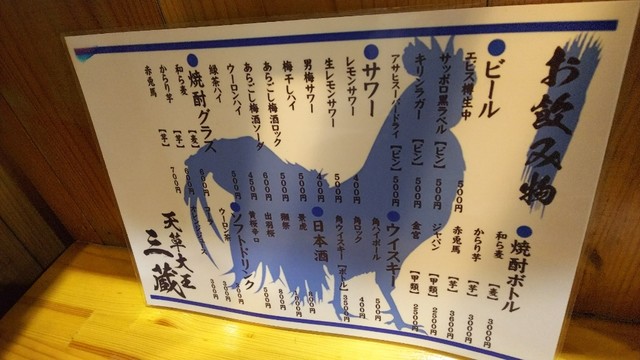 お飲み物
●ビール
エビス樽生中 500円
サッポロ黒ラベル【ビン】500円
キリンラガー【ビン】500円
アサヒスーパードライ【ビン】500円
●サワー
レモンサワー 400円
生レモンサワー 500円
男梅サワー 400円
梅干しハイ 500円
あらごし梅酒ロック 600円
あらごし梅酒ソーダ 450円
ウーロンハイ 500円
緑茶ハイ
●焼酎グラス
和ら麦【麦】600円
からり芋【芋】600円
赤兎馬【芋】700円
●焼酎ボトル
和ら麦【麦】3000円
からり芋【芋】3000円
赤兎馬【芋】3600円
ジャパン【甲類】2500円
金宮【甲類】2500円
●ウイスキー
角ハイボール 500円
角ロック 400円
角ウイスキー【ボトル】3500円
●日本酒
景虎
獺祭 800円
出羽桜
黄桜辛口
●ソフトドリンク
ウーロン茶
天草大王
三蔵